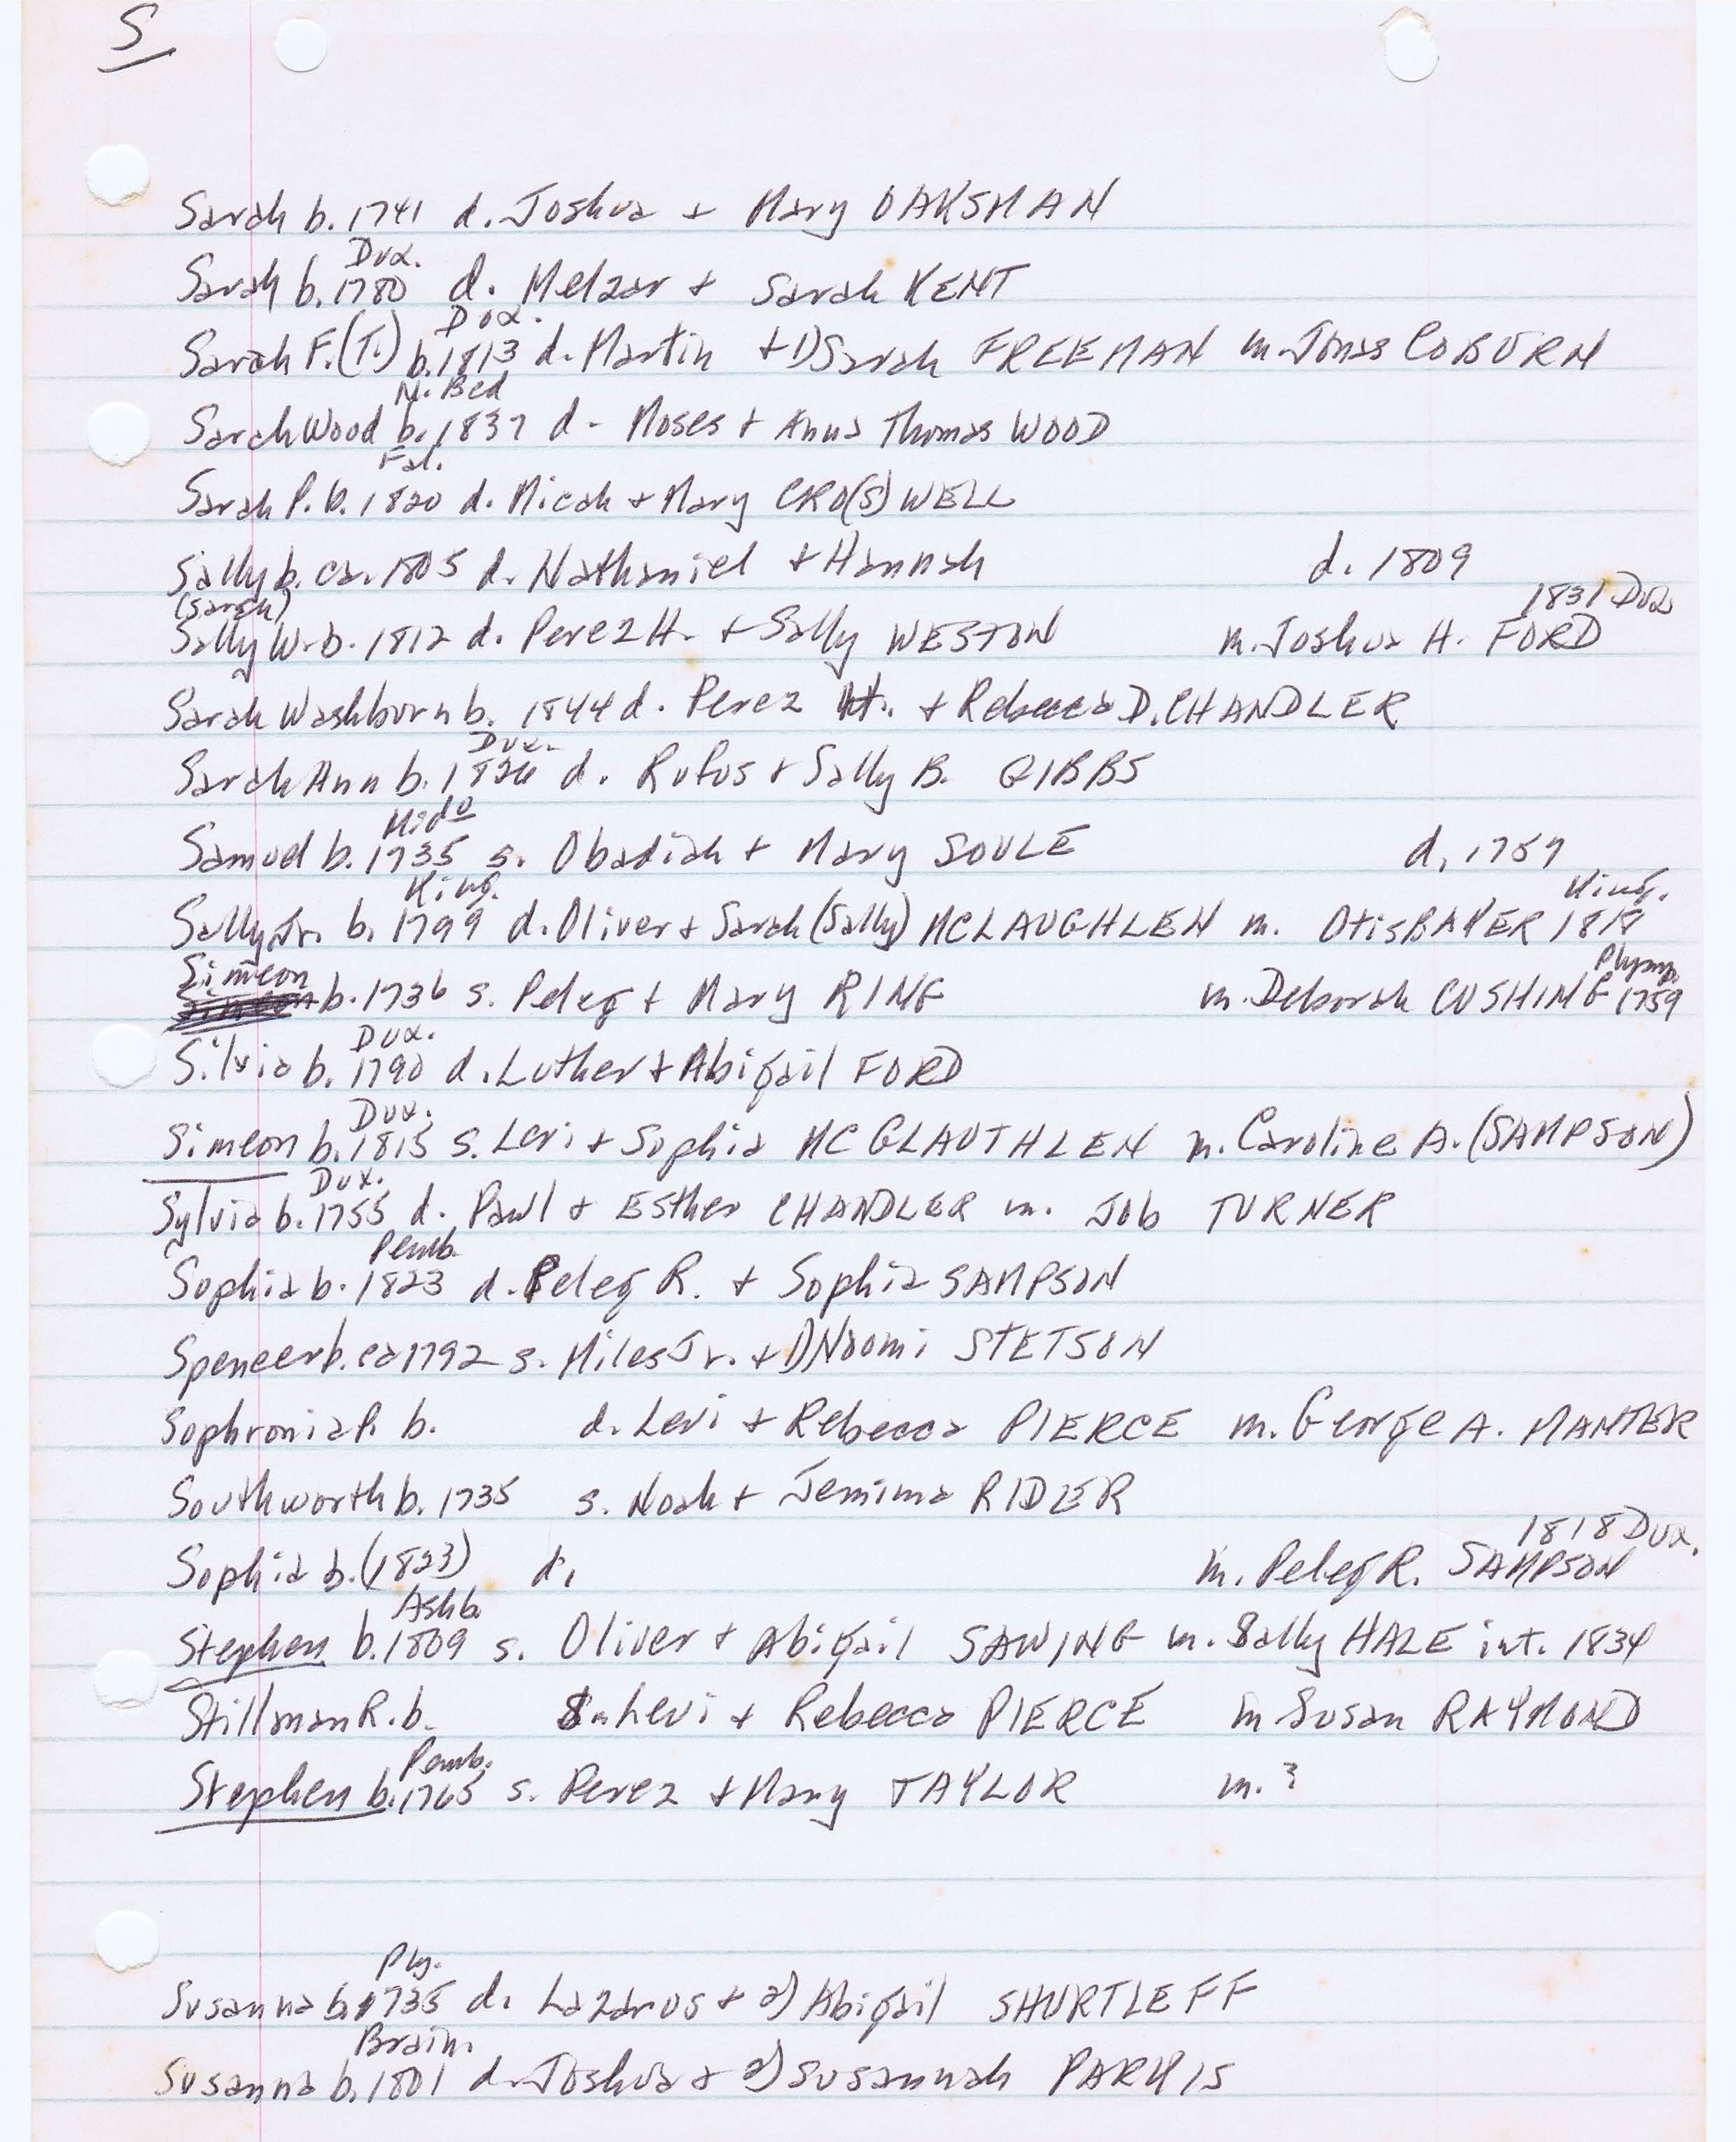 S
Sarah b. 1741 d. Joshua + Mary OAKSMAN
Dux.
Sarah b. 1780 d. Melzar + Sarah KENT
Dux.
Sarah F.(T.) b. 1813 d. Martin + 1) Sarah FREEMAN m. Jonas COBURN
N. Bed
Sarah Wood b. 1837 d- Moses + Anna Thomas WOOD
Fal.
Sarah P. b. 1820 d. Micah + Mary CRO(S)WELL
Sally b. ca. 1805 d. Nathaniel + Hannah d. 1809
(Sarah) 1831 Dux
Sally W. b. 1812 d. Perez H. + Sally WESTON m. Joshua H. FORD
Sarah Washburn b. 1844 d. Perez H. + Rebecca D. CHANDLER
Dux.
Sarah Ann b. 1826 d. Rufus + Sally B. GIBBS
Mido
Samuel b. 1735 s. Obadiah + Mary SOULE d. 1759
King. King.
Sally Jr. b. 1799 d. Oliver + Sarah (Sally) MCLAUGHLEN m. Otis BAKER 1818
Simeon Plymp.
b. 1736 s. Peleg + Mary RING m. Deborah CUSHING 1759
Dux.
Silvia b. 1790 d. Luther + Abigail FORD
Dux.
Simeon b. 1815 s. Levi + Sophia MCGLAUTHLEN m. Caroline A. (SAMPSON)
Dux.
Sylvia b. 1755 d. Paul + Esther CHANDLER m. Job TURNER
Pemb.
Sophia b. 1823 d. Peleg R. + Sophia SAMPSON
Spencer b. ca 1792 s. Miles Jr. + 1) Naomi STETSON
Sophronia P. b. d. Levi + Rebecca PIERCE m. George A. MANTER
Southworth b. 1735 s. Noah + Jemima RIDER
1818 Dux.
Sophia b. (1823) d. m. Peleg R. SAMPSON
Ashb.
Stephen b. 1809 s. Oliver + Abigail SAWING m. Sally HALE int. 1834
Stillman R. b. S. Levi + Rebecca PIERCE m Susan RAYMOND
Pemb.
Stephen b. 1765 s. Perez + Mary TAYLOR m. ?
Ply.
Susanna b. 1735 d. Lazarus + 2) Abigail SHURTLEFF
Brain.
Susanna b. 1801 d. Joshua + 2) Susannah PARKIS